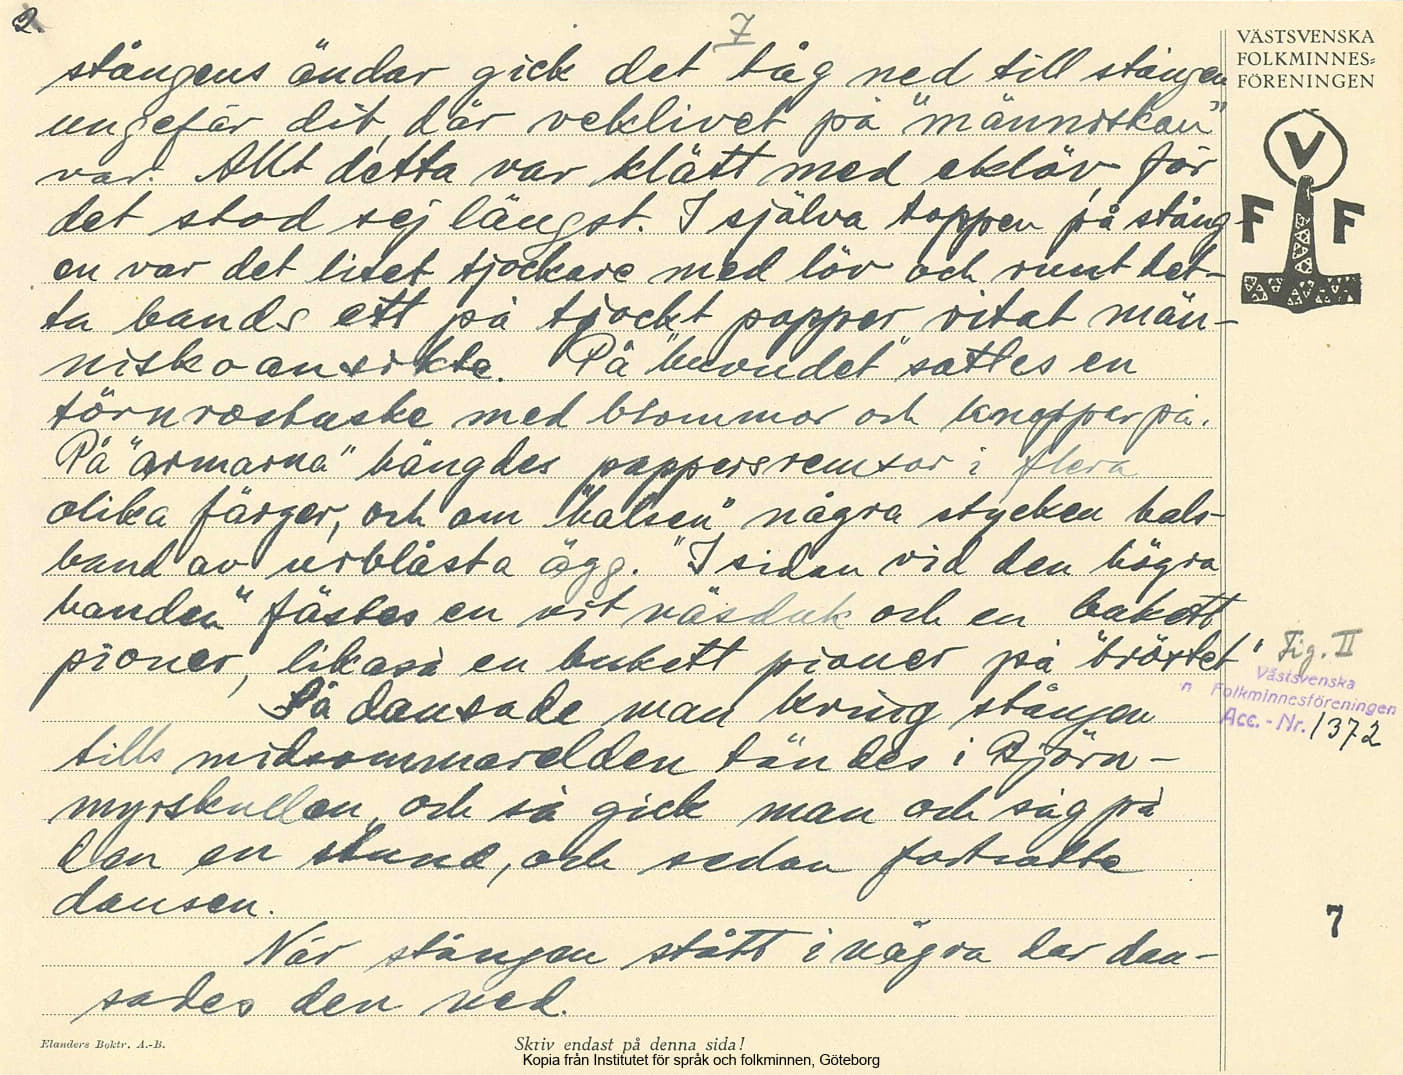 2
7
VÄSTSVENSKA
FOLKMINNES=
FÖRENINGEN
V
F F
stångens ändar gick det tåg ned till stången
ungefär dit, där veklivet på "människan"
var. Allt detta var klätt med eklöv, för
det stod sej längst. I själva toppen på stång-
en var det litet tjockare med löv och runt det-
ta bands ett på tjockt papper ritat män-
niskoansikte. På "huvudet" sattes en
törnrosbuske med blommor och knoppar på.
På "armarna" hängdes pappersremsor i flera
olika färger, och om "halsen" några stycken hals-
band av urblåsta ägg. "I sidan vid den högra
handen" fästes en vit näsduk och en bukett
pioner, likaså en bukett pioner på "bröstet"
Fig. II
Västsvenska
Folkminnesföreningen
Acc. - Nr. 1372
Så dansade man kring stången
tills midsommarelden tändes i Björn-
myrskullen, och så gick man och såg på
den en stund, och sedan fortsatte
dansen.
7
När stången stått i några dar dan-
sades den ned.
Elanders Boktr. A.-B.
Skriv endast på denna sida!
Kopia från Institutet för språk och folkminnen, Göteborg